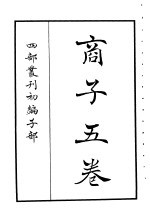 商子五卷
四部叢刊初編子部